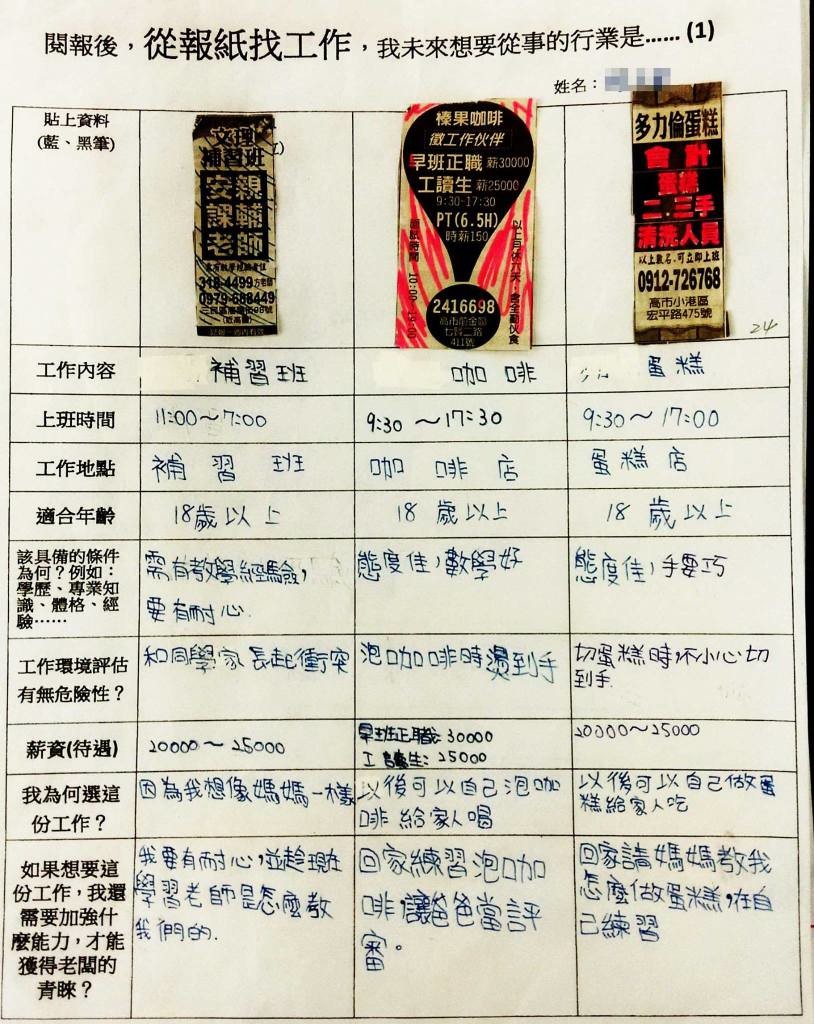 閱報後，從報紙找工作，我未來想要從事的行業是……(1)
姓名：
貼上資料
(藍、黑筆)
文理
補習班
安親
課輔
老師
318-4499方老師
0979-688449
榛果咖啡
徵工作伙伴
早班正職 薪30000
工讀生 薪25000
9:30-17:30
PT(6.5H)
時薪150
以上月休六天，含全勤伙食
面試時間 10:00-18:00
2416698
高市前金區
七賢二路
411號
多力倫蛋糕
會計
蛋糕
二.三手
清洗人員
以上數名，可立即上班
0912-726768
高市小港區
宏平路475號
24
工作內容 補習班 咖啡 蛋糕
上班時間 11:00～7:00 9:30～17:30 9:30～17:00
工作地點 補習班 咖啡店 蛋糕店
適合年齡 18歲以上 18歲以上 18歲以上
該具備的條件
為何？例如：
學歷、專業知
識、體格、經
驗……
需有教學經驗，
要有耐心.
態度佳，數學好
態度佳，手要巧
工作環境評估
有無危險性？
和同學家長起衝突
泡咖啡時燙到手
切蛋糕時，不小心切
到手.
薪資(待遇)
20000～25000
早班正職：30000
工讀生：25000
20000～25000
我為何選這
份工作？
因為我想像媽媽一樣
以後可以自己泡咖
啡給家人喝
以後可以自己做蛋
糕給家人吃
如果想要這
份工作，我還
需要加強什
麼能力，才能
獲得老闆的
青睞？
我要有耐心，並趁現在
學習老師是怎麼教
我們的.
回家練習泡咖
啡，讓爸爸當評
審。
回家請媽媽教我
怎麼做蛋糕，在自
己練習